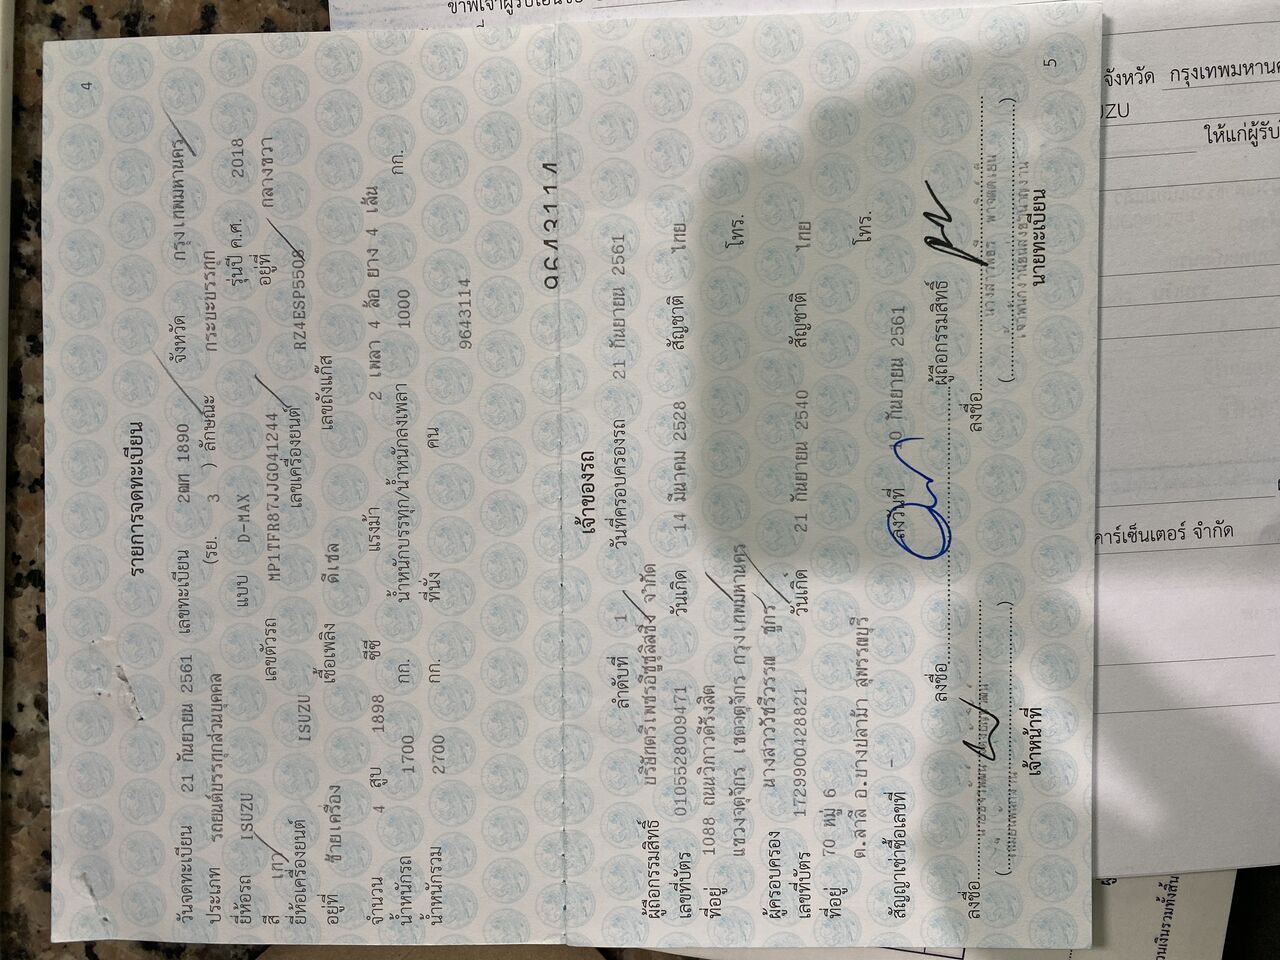 4
รายการจดทะเบียน
วันจดทะเบียน 21 กันยายน 2561 เลขทะเบียน 2ฒก 1890 จังหวัด กรุงเทพมหานคร
ประเภท รถยนต์บรรทุกส่วนบุคคล (รย. 3 ) ลักษณะ กระบะบรรทุก
ยี่ห้อรถ ISUZU แบบ D-MAX รุ่นปี ค.ศ. 2018
สี เทา เลขตัวรถ MP1TFR87JJG041244 อยู่ที่ กลางขวา
ยี่ห้อเครื่องยนต์ ISUZU เลขเครื่องยนต์ RZ4ESP5508
อยู่ที่ ซ้ายเครื่อง เชื้อเพลิง ดีเซล เลขถังแก๊ส
จำนวน 4 สูบ 1898 ซีซี แรงม้า 2 เพลา 4 ล้อ ยาง 4 เส้น
น้ำหนักรถ 1700 กก. น้ำหนักบรรทุก/น้ำหนักลงเพลา 1000 กก.
น้ำหนักรวม 2700 กก. ที่นั่ง คน
9643114
9643114
เจ้าของรถ
ลำดับที่ 1 วันที่ครอบครองรถ 21 กันยายน 2561
ผู้ถือกรรมสิทธิ์ บริษัทตรีเพชรอีซูซุลิสซิ่ง จำกัด
เลขที่บัตร 0105528009471 วันเกิด 14 มีนาคม 2528 สัญชาติ ไทย
ที่อยู่ 1088 ถนนวิภาวดีรังสิต
แขวงจตุจักร เขตจตุจักร กรุงเทพมหานคร โทร.
ผู้ครอบครอง นางสาววัชรีวรรณ ชูกร
เลขที่บัตร 1729900428821 วันเกิด 21 กันยายน 2540 สัญชาติ ไทย
ที่อยู่ 70 หมู่ 6
ต.สาลี อ.บางปลาม้า สุพรรณบุรี โทร.
สัญญาเช่าซื้อเลขที่ - ลงวันที่ 10 กันยายน 2561
ลงชื่อ ผู้ถือกรรมสิทธิ์
ลงชื่อ ลงชื่อ
เจ้าหน้าที่ นายทะเบียน
5
จังหวัด กรุงเทพมหานคร
ให้แก่ผู้รับ
คาร์เซ็นเตอร์ จำกัด